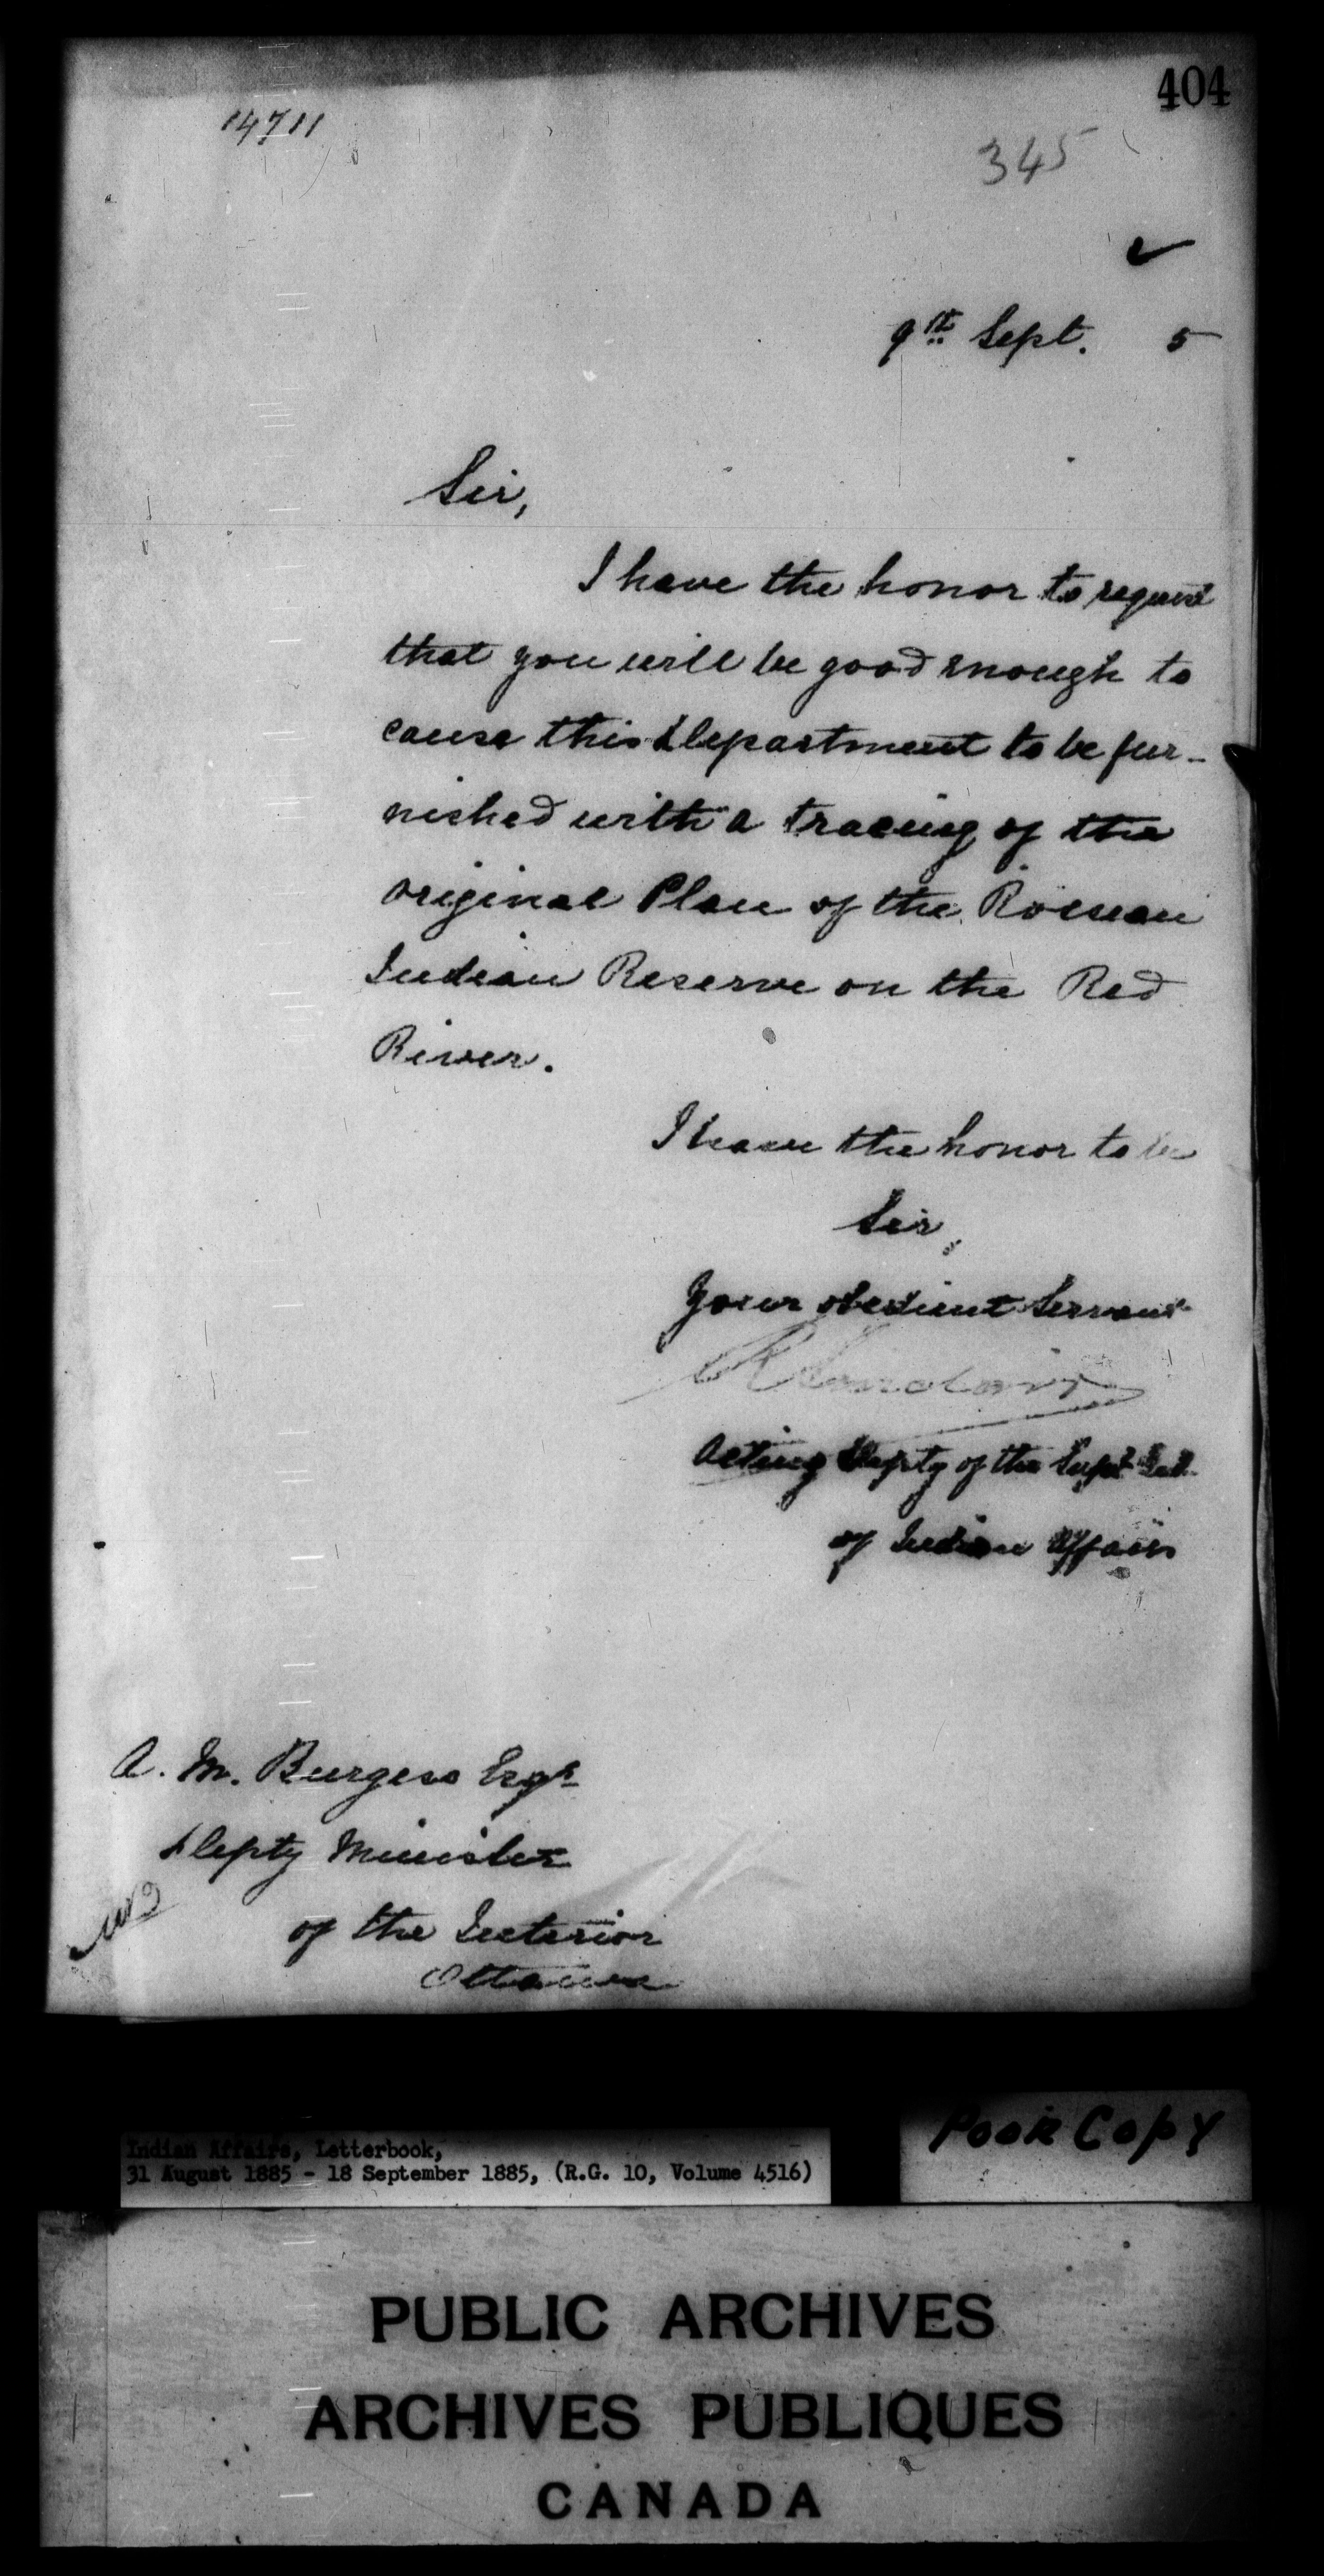 404
14711
345
9th Sept. 5
Sir,
I have the honor to request
that you will be good enough to
cause this Department to be fur-
nished with a tracing of the
original Plan of the Roseau
Indian Reserve on the Red
River.
I have the honor to be
Sir,
Your obedient Servant
R Sinclair
Acting Depty of the Supt Genl.
of Indian Affairs
A. M. Burgess Esqr
Depty Minister
of the Interior
Ottawa
Indian Affairs, Letterbook,
31 August 1885 - 18 September 1885, (R.G. 10, Volume 4516)
Poor Copy
PUBLIC ARCHIVES
ARCHIVES PUBLIQUES
CANADA